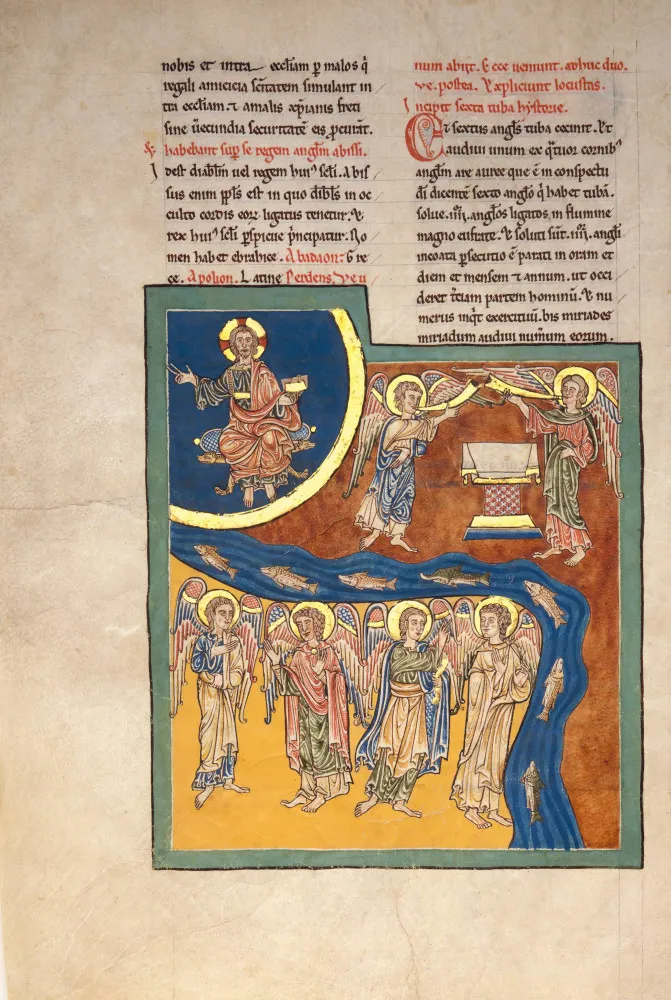 nobis et intra eccliam p̱ malos q̇
regali amicicia sc̄itatem simulant in
tra eccliam ⁊ amalis xp̄ianis freti
sine ūecundia securitatē eis p̱curāt.
& habebant sup̱ se regem angl̄m abissi.
Idest diabl̄m uel regem hui' sc̄li. Abis
sus enim pp̄ls est in quo dibl̄s in oc
culto cordis eorꝝ ligatus tenetur. &
rex hui' sc̄li p̱spicue p̱ncipatur. No
men habet ebraice. Abadaon: G re
ce. Apolion. Latine Perdens. Ve u
num abiit. Ecce ueniunt. adhuc duo.
ve. postea. Expliciunt locustas.
Incipit sexta tuba hystorie.
Et sextus angl̄s tuba cecinit. Et
audiui unum ex q̇tuor cornib'
anḡlm are auree que ē in conspectu
dī dicentē sexto angl̄o q̇ habet tubā.
solue .IIIIᵒʳ. angl̄os ligatos in flumine
magno eufrate. & soluti sūt .IIIIᵒʳ. angl̄i
incoata p̱secutio ē parati in oram et
diem et mensem ⁊ annum. ut occi
deret t̄ciam partem hominū. & nu
merus inq̇t exercituū. bis miriades
miriadum audiui num̄um eorum.